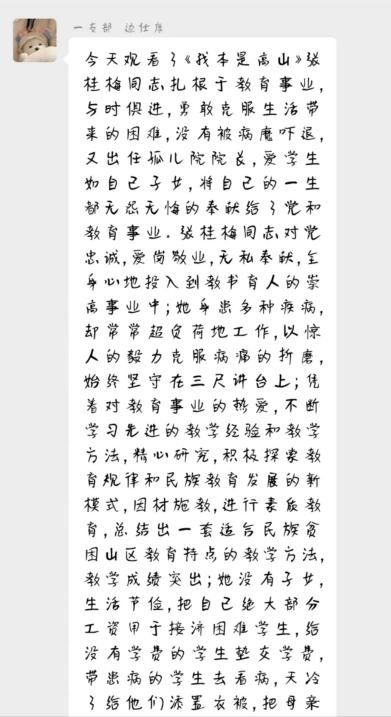 一支部 边仕彦
今天观看了《我本是高山》张
桂梅同志扎根于教育事业,
与时俱进,勇敢克服生活带
来的困难,没有被病魔吓退,
又出任孤儿院院长,爱学生
如自己子女,将自己的一生
都无怨无悔的奉献给了党和
教育事业。张桂梅同志对党
忠诚,爱岗敬业,无私奉献,全
身心地投入到教书育人的崇
高事业中;她身患多种疾病,
却常常超负荷地工作,以惊
人的毅力克服病痛的折磨,
始终坚守在三尺讲台上;凭
着对教育事业的热爱,不断
学习先进的教学经验和教学
方法,精心研究,积极探索教
育规律和民族教育发展的新
模式,因材施教,进行素质教
育,总结出一套适合民族贫
困山区教育特点的教学方法,
教学成绩突出;她没有子女,
生活节俭,把自己绝大部分
工资用于接济困难学生,给
没有学费的学生垫交学费,
带患病的学生去看病,天冷
了给他们添置衣被,把母亲